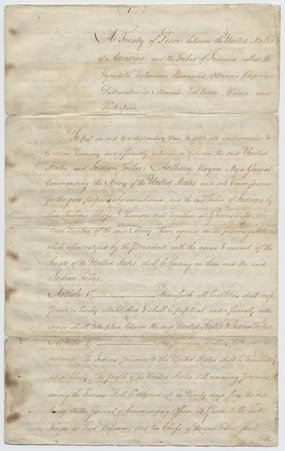 A Treaty of Peace between the United States
of America and the Tribes of Indians called the
Wyandots Delawares Shawanoes Ottawas Chipewas
Putawatames Miamis Eel River Weea's and
Kickapoos.
To put an end to a destructive War, to settle all controversies &
to restore harmony and a friendly intercourse between the said United
States and Indian Tribes; Anthony Wayne Major General
Commanding the Army of the United States and sole Commissioner
for the good purposes abovementioned, and the said Tribes of Indians by
their Sachems Chiefs & Warriors met together at Greeneville, the
Head Quarters of the said Army have agreed on the following Articles
which when ratified by the President with the advice & consent of the
Senate of the United States shall be binding on them and the said
Indian Tribes.
Article 1st Henceforth all hostilities shall cease,
Peace is hereby established & shall be perpetual and a friendly inter-
course shall take place between the said United States & Indian Tribes
Article 2d All prisoners shall on both sides be
restored. The Indians prisoners to the United States shall be immediately
set at liberty. The people of the United States still remaining prisoners
among the Indians shall be delivered up in Ninety days from the date
hereof to the General or Commanding Officer at Greeneville, Fort
Wayne or Fort Defiance; And ten Chiefs of the said Tribes shall